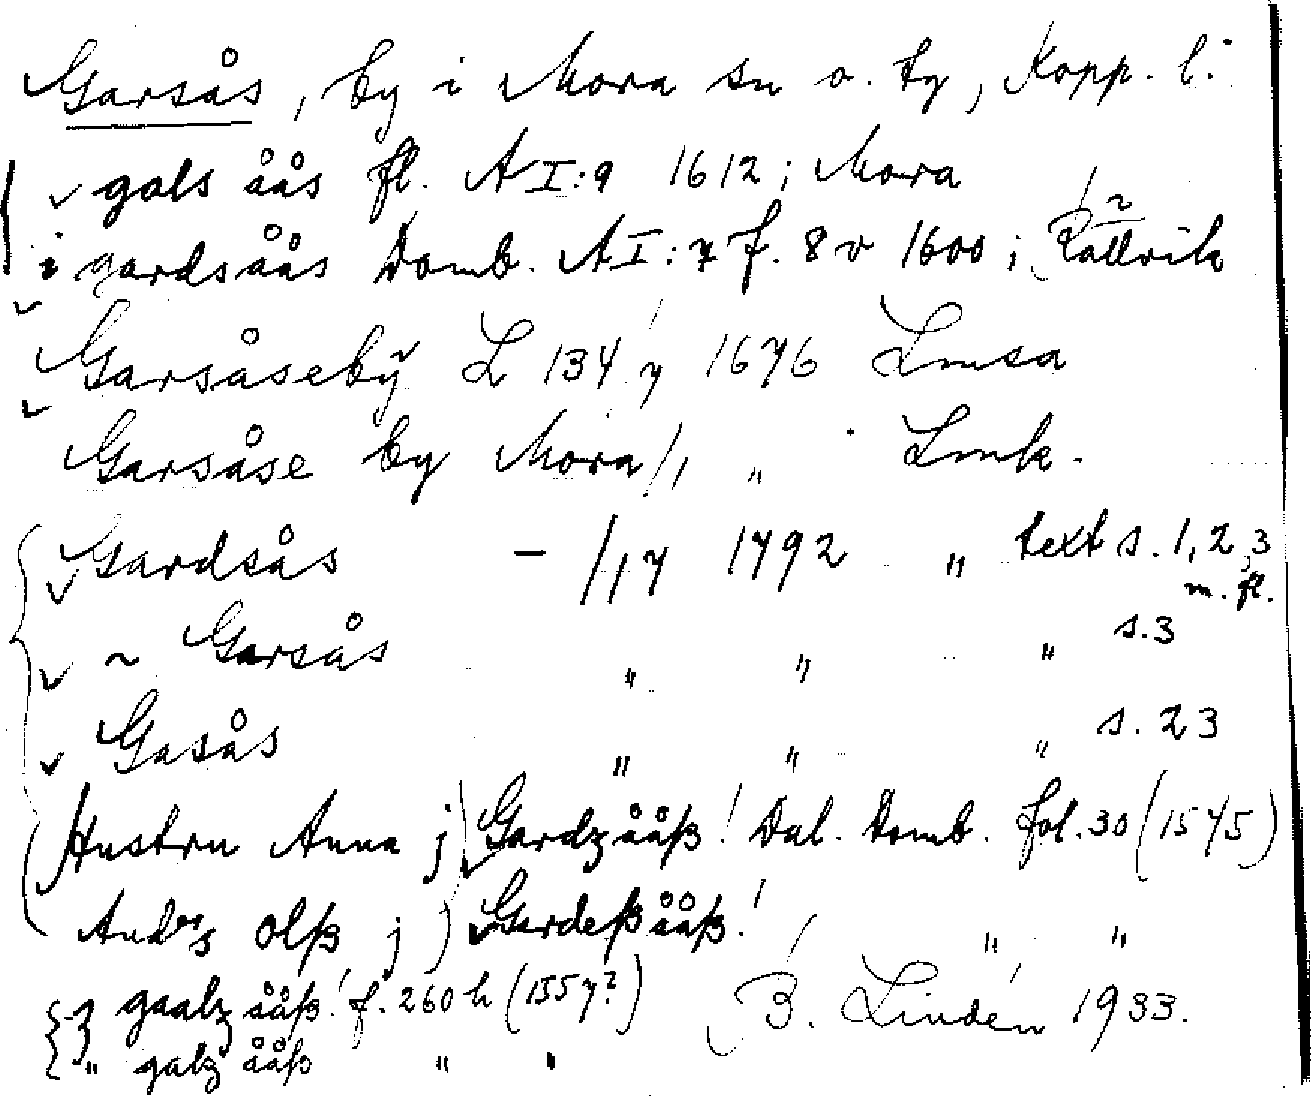 Garsås, by i Mora sn o. tg, Kopp. l.
gals åås fl. A I:9 1612; Mora
i gardsåås Domb. A I:7 f. 8 v 1600; Rättvik
Garsåseby L 134/7 1676 Lmsa
Garsåse by Mora 1/1 " Lmk.
Gardsås – 1/17 1792 " text s. 1, 2, 3 m. fl.
~ Garsås " " " s. 3
Gasås " " " s. 23
Hustru Anna j Gardzååß! Dal. Domb. fol. 30 (1545)
Anders olß j Gardeßååß! " "
gaalz ååß! f. 260 h (1557?) B. Lindén 1933.
" galz ååß " "